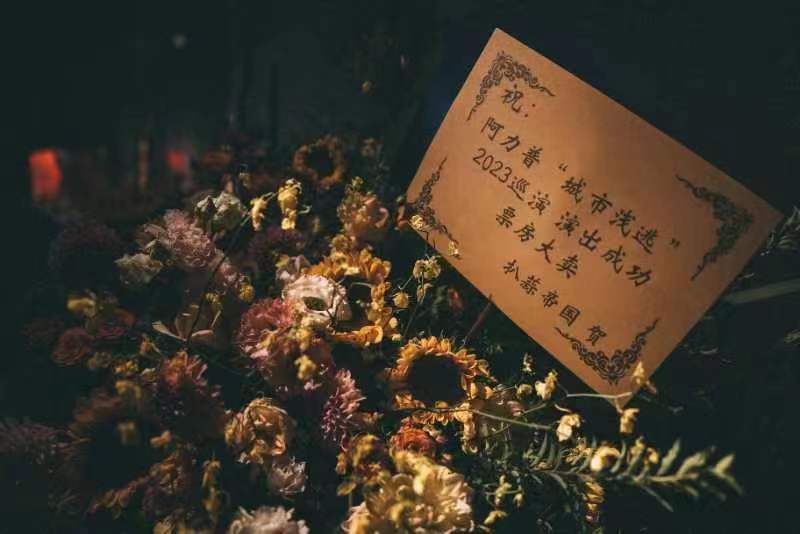 祝：
阿力普“城市浅逃”
2023巡演 演出成功
票房大卖
扒蒜帝国 贺